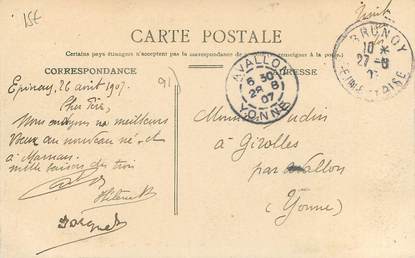 15€
Droits
CARTE POSTALE
Certains pays étrangers n'acceptent pas la correspondance de enseigner à la poste.)
CORRESPONDANCE
ADRESSE
91
Epinay, 26 août 1907.
Cher
Nous envoyons nos meilleurs
Vœux au nouveau né, et
à Maman.
mille baisers des trois
Hélène
AVALLON
6 30
28 8
07
YONNE
BRUNOY
10 *
27 8
SEINE ET OISE
Monsieur
à Girolles
par Avallon
(Yonne)